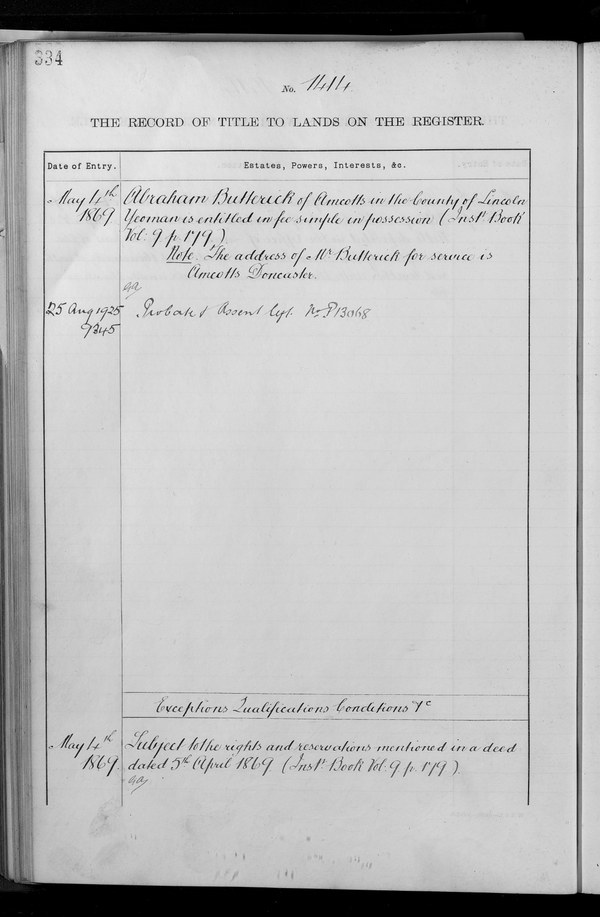 334
No. 1414
THE RECORD OF TITLE TO LANDS ON THE REGISTER.
Date of Entry.
Estates, Powers, Interests, &c.
May 4th
1869
Abraham Butterick of Amcotts in the County of Lincoln
Yeoman is entitled in fee simple in possession (Inst. Book
Vol. 9 p. 179.)
Note. The address of Mr Butterick for service is
Amcotts Doncaster.
25 Aug 1925
9345
Probate & Assent Cpt. No P13068
Exceptions Qualifications Conditions &c
May 4th
1869.
Subject to the rights and reservations mentioned in a deed
dated 5th April 1869 (Inst. Book Vol. 9 p. 179).